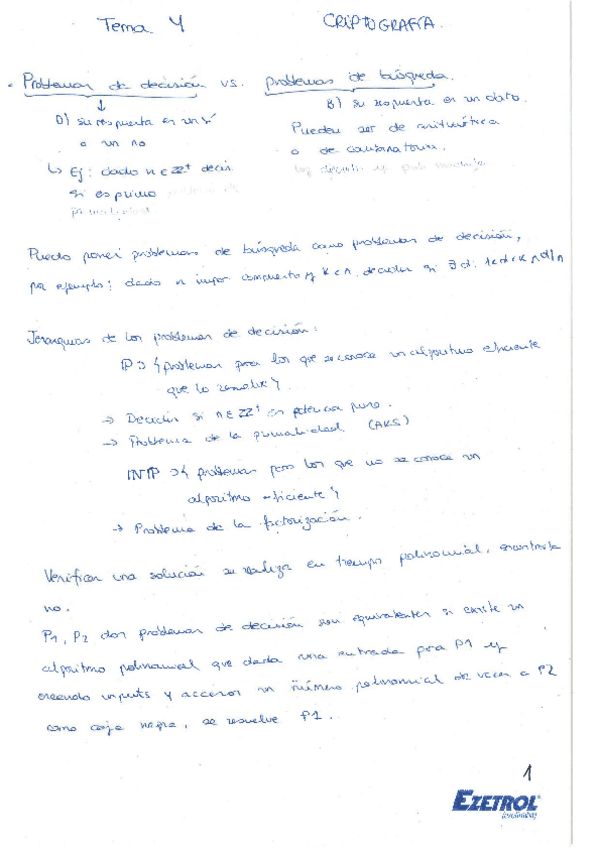 Tema 4 CRIPTOGRAFÍA.
Problemas de decisión vs. problemas de búsqueda.
D) su respuesta es un sí
o un no
B) su respuesta es un dato.
Pueden ser de aritmética
o de combinatoria.
↳ Ej: dado n ∈ ZZ⁺ decir
si es primo
Puedo poner problemas de búsqueda como problemas de decisión,
por ejemplo: dado n impar compuesto y k<n, decidir si ∃d: 1<d<k ∧ d|n
Jerarquías de los problemas de decisión:
IP ⊃ {problemas para los que se conoce un algoritmo eficiente
que lo resuelve}.
→ Decidir si n ∈ ZZ⁺ es potencia pura.
→ Problema de la primalidad. (AKS)
INIP ⊃ {problemas para los que no se conoce un
algoritmo eficiente}
→ Problema de la factorización.
Verificar una solución se realiza en tiempo polinomial, encontrarla
no.
P1, P2 dos problemas de decisión son equivalentes si existe un
algoritmo polinomial que dada una entrada para P1 y
creando inputs y accesos un número polinomial de veces a P2
como caja negra, se resuelve P1.
1
EZETROL